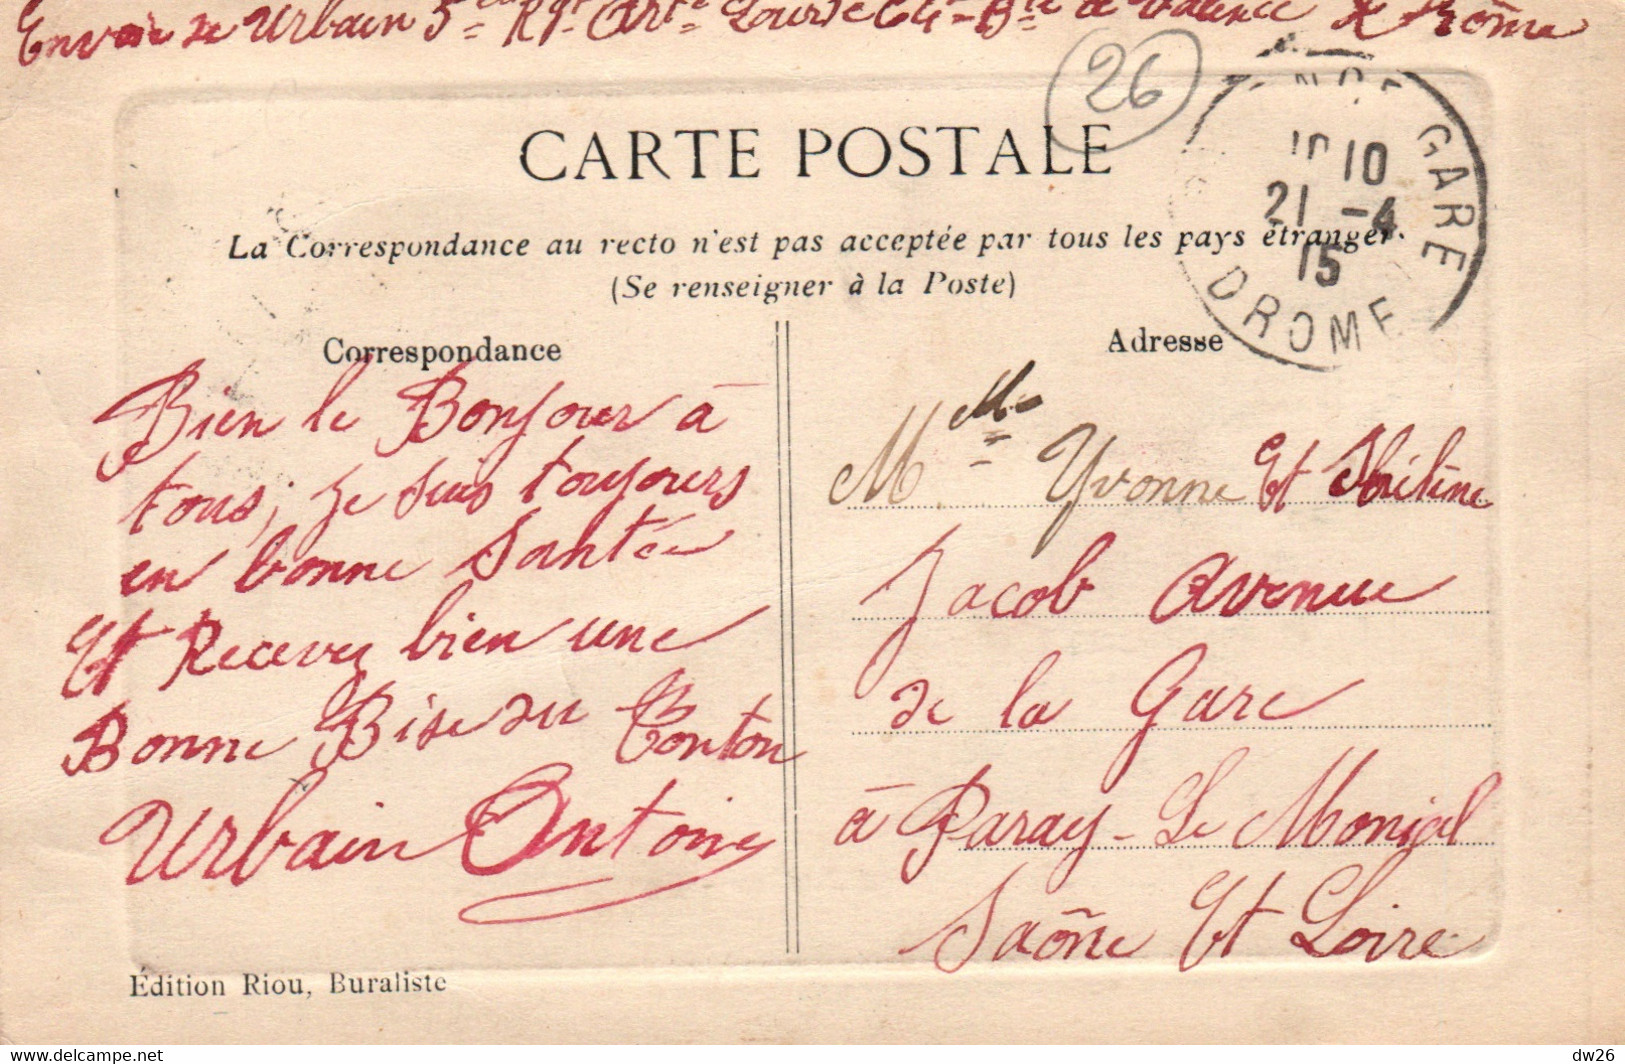 Envoi de Urbain 5e Rgt Art Lourde 64e Bie à Valence Drôme
26
CARTE POSTALE
GARE
10
21 -4
15
DROME
La Correspondance au recto n'est pas acceptée par tous les pays étranger.
(Se renseigner à la Poste)
Correspondance
Adresse
Bien le Bonjour à
tous, je suis toujours
en bonne Santée
Et Recevez bien une
Bonne Bise du Tonton
Urbain Antoine
Mlle Yvonne Et
Jacob Avenue
de la Gare
à Paray-Le Monial
Saône Et Loire
Édition Riou, Buraliste
www.delcampe.net
dw26